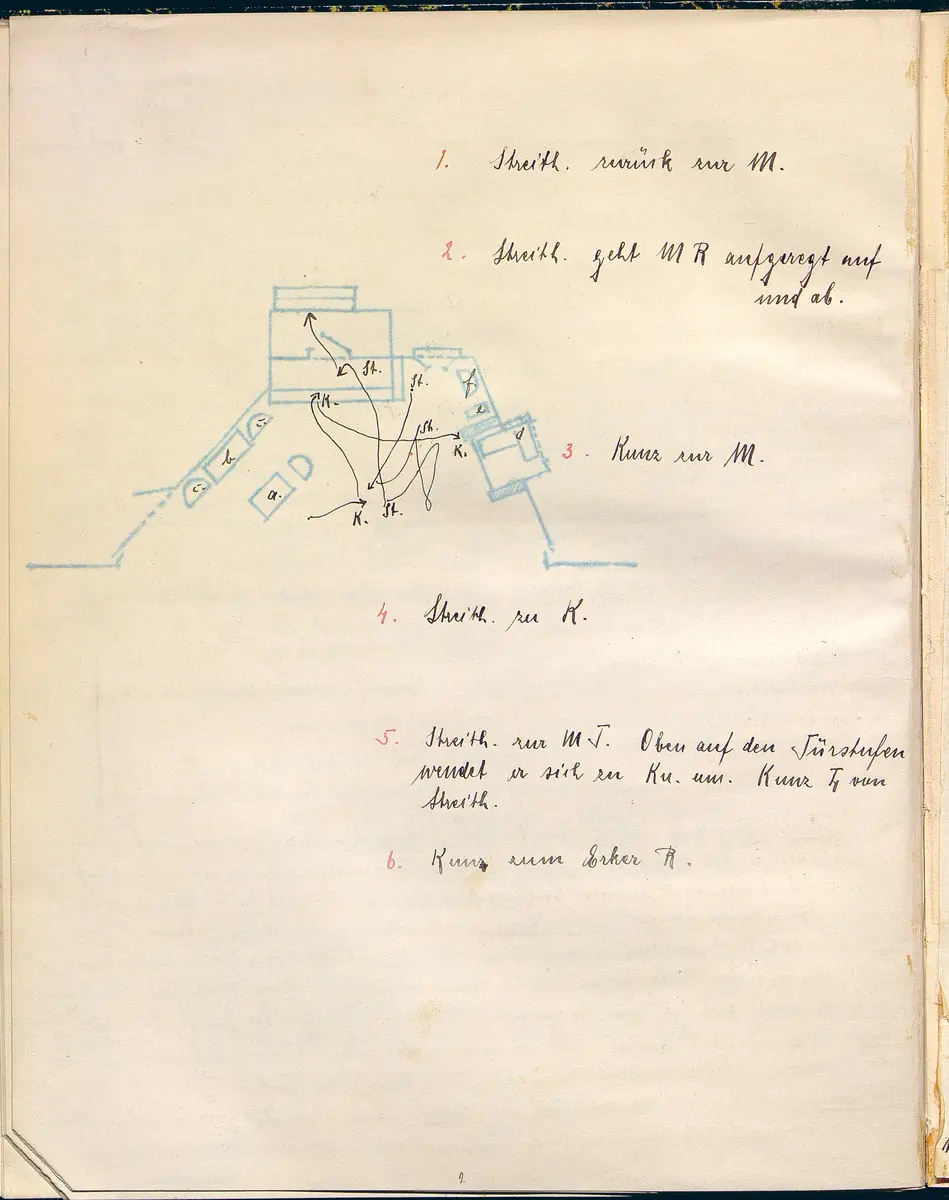 1. Streith. zurück zur M.
2. Streith. geht M R aufgeregt auf
und ab.
St.
St.
f
K.
e
c.
St.
d
b
K.
3. Kunz zur M.
c.
a.
K.
St.
4. Streith. zu K.
5. Streith. zur M T. Oben auf den Türstufen
wendet er sich zu Ku. um. Kunz L von
Streith.
6. Kunz zum Erker R.